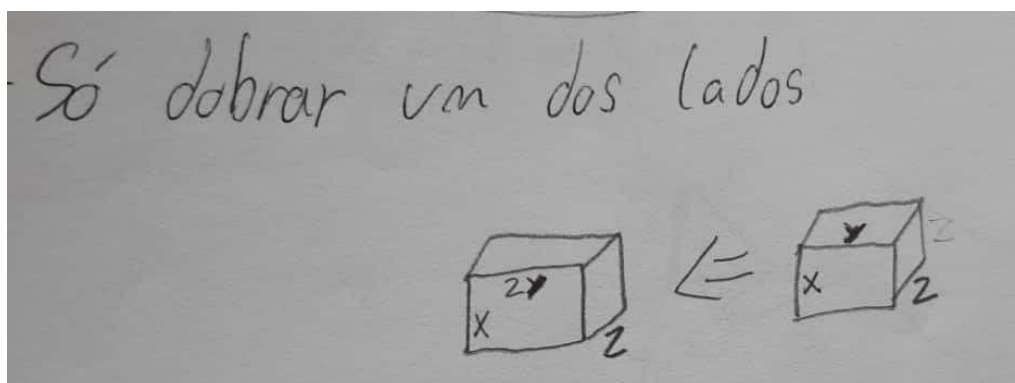 - Só dobrar um dos lados
y z
2y <= x z
x z